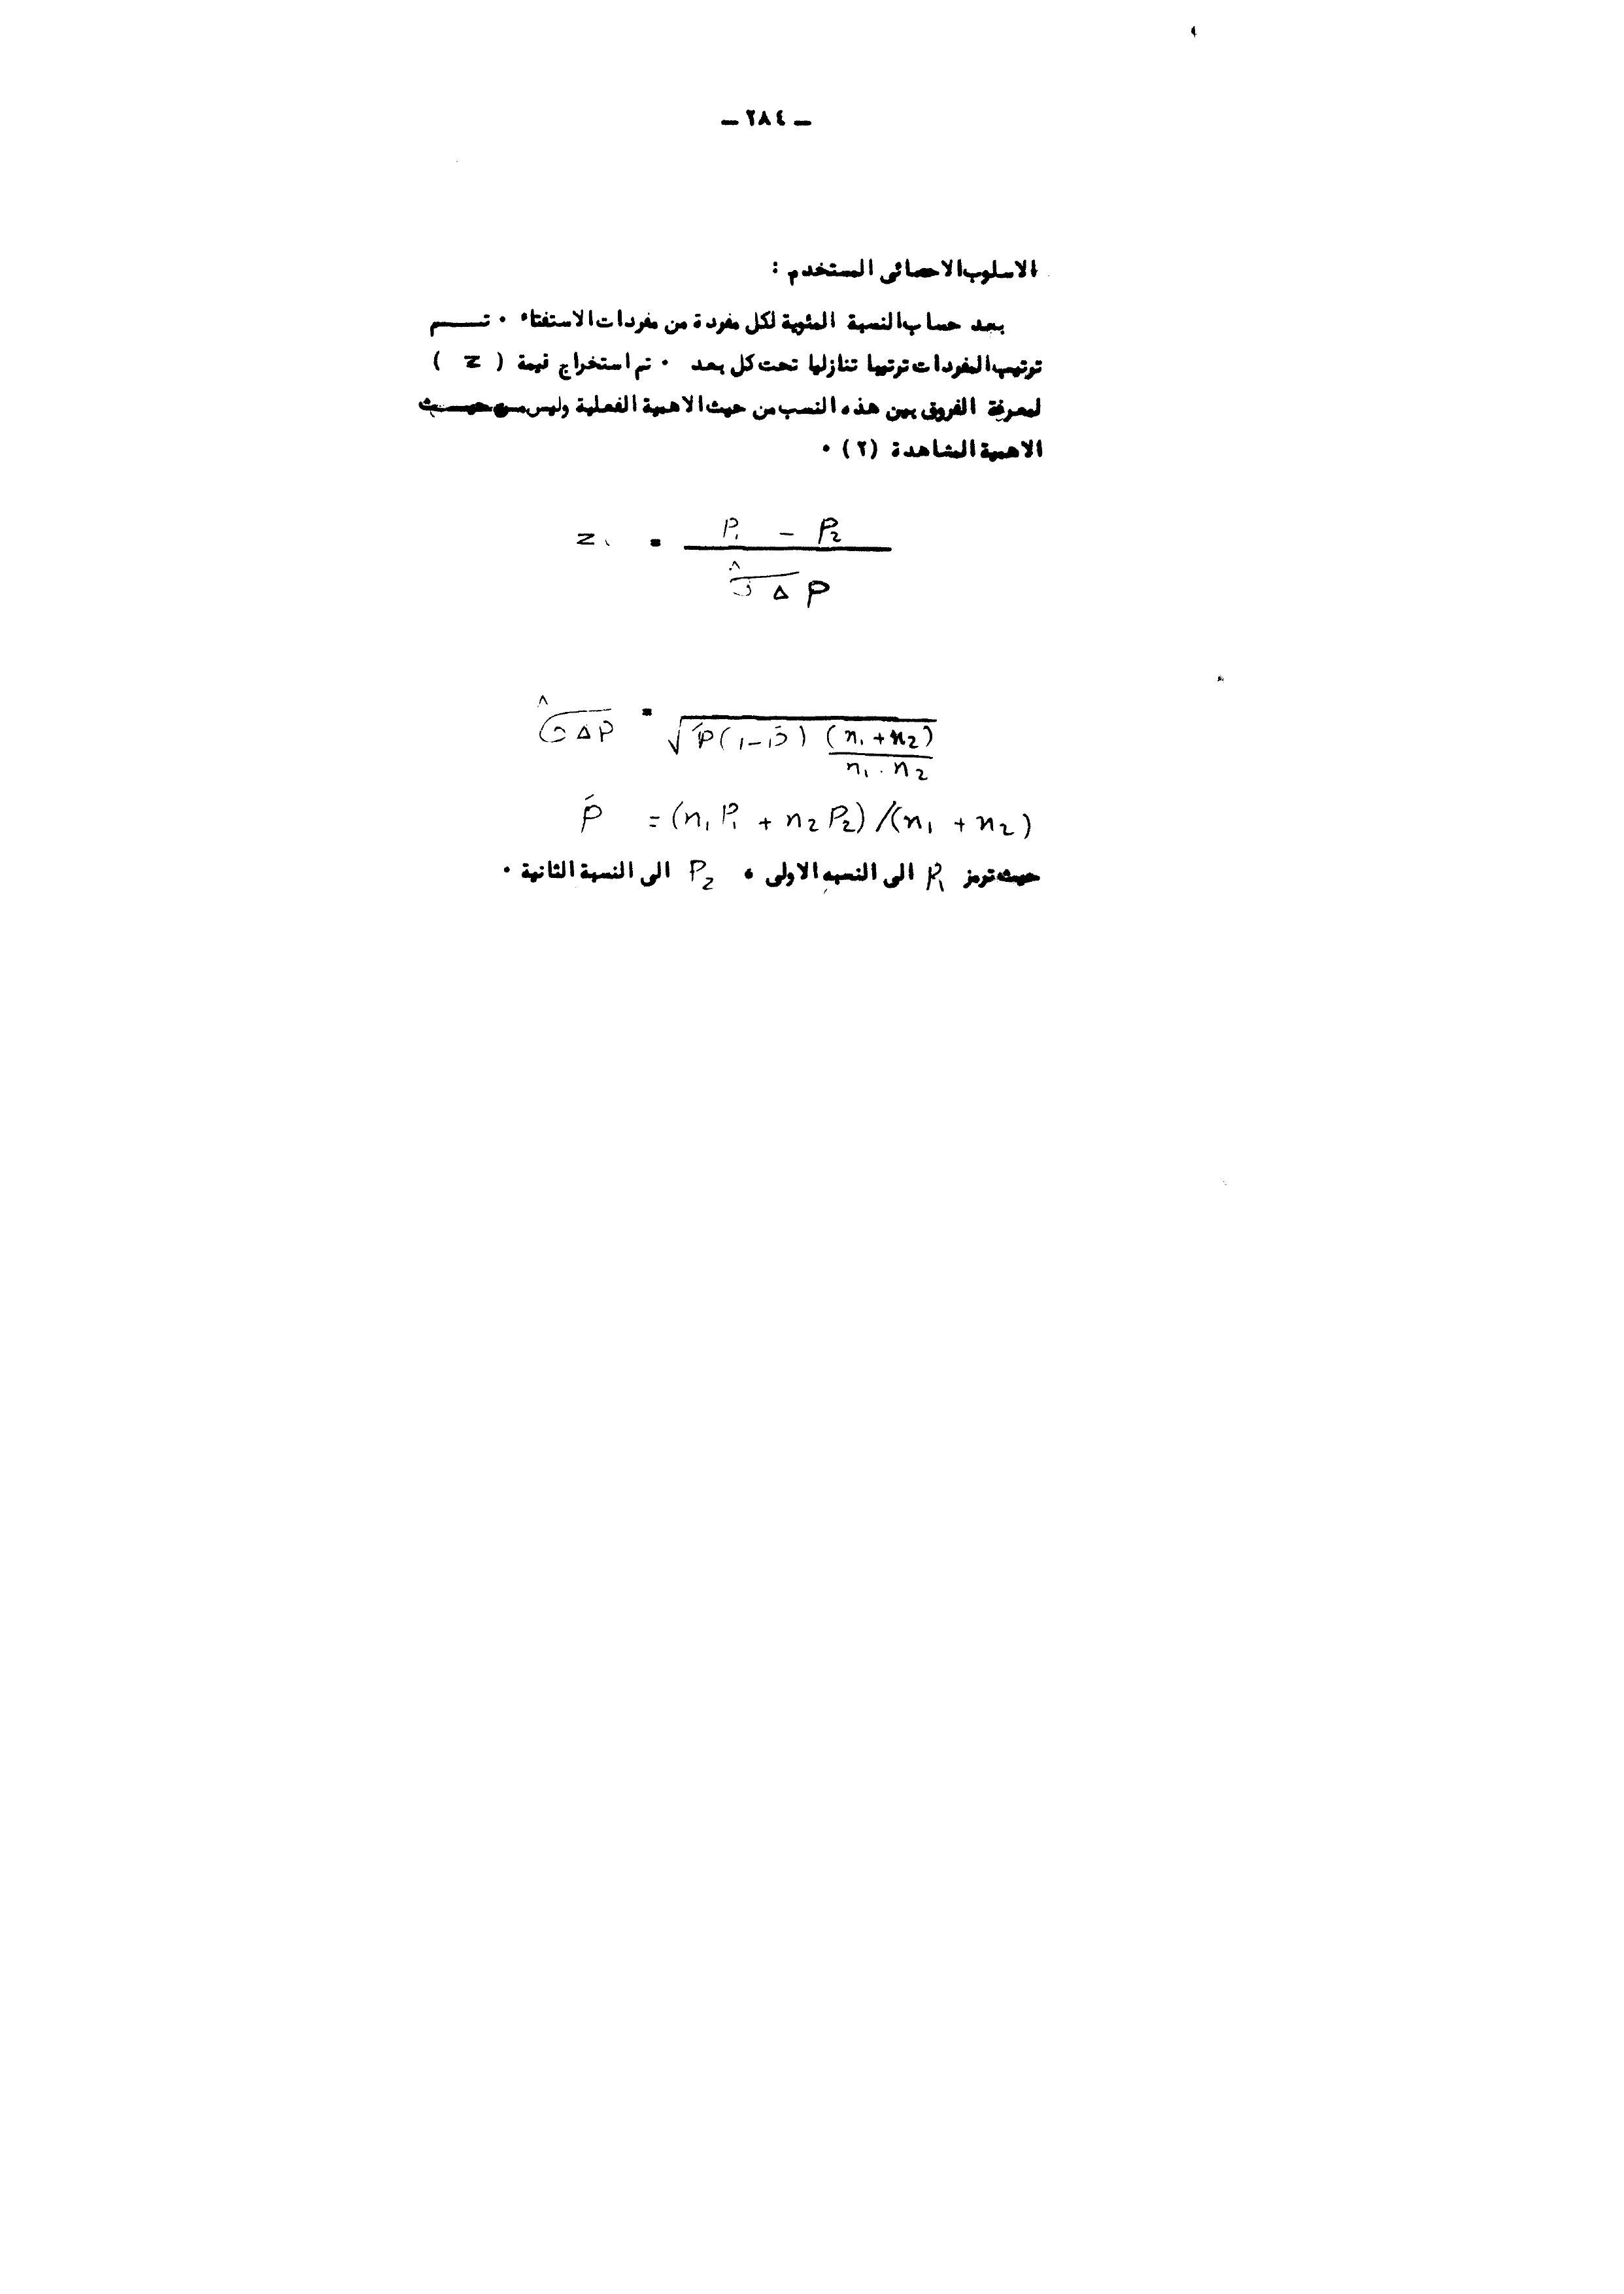 ـ ٢٨٤ ـ
الاسلوب الاحصائى المستخدم :
بعد حساب النسبة المئوية لكل مفردة من مفردات الاستفتاء ٠ تــــم
ترتيب المفردات ترتيبا تنازليا تحت كل بعد ٠ تم استخراج قيمة ( Z )
لمعرفة الفروق بين هذه النسب من حيث الاهمية الفعلية وليس من حيــــث
الاهمية المشاهدة (٢) ٠
Z = P₁ − P₂
σ̂ Δ P
σ̂ Δ P = √ p̄ (1 − p̄) (n₁ + n₂)
n₁ . n₂
p̄ = (n₁ P₁ + n₂ P₂) / (n₁ + n₂)
حيث ترمز P₁ الى النسبه الاولى ، P₂ الى النسبة الثانية ٠